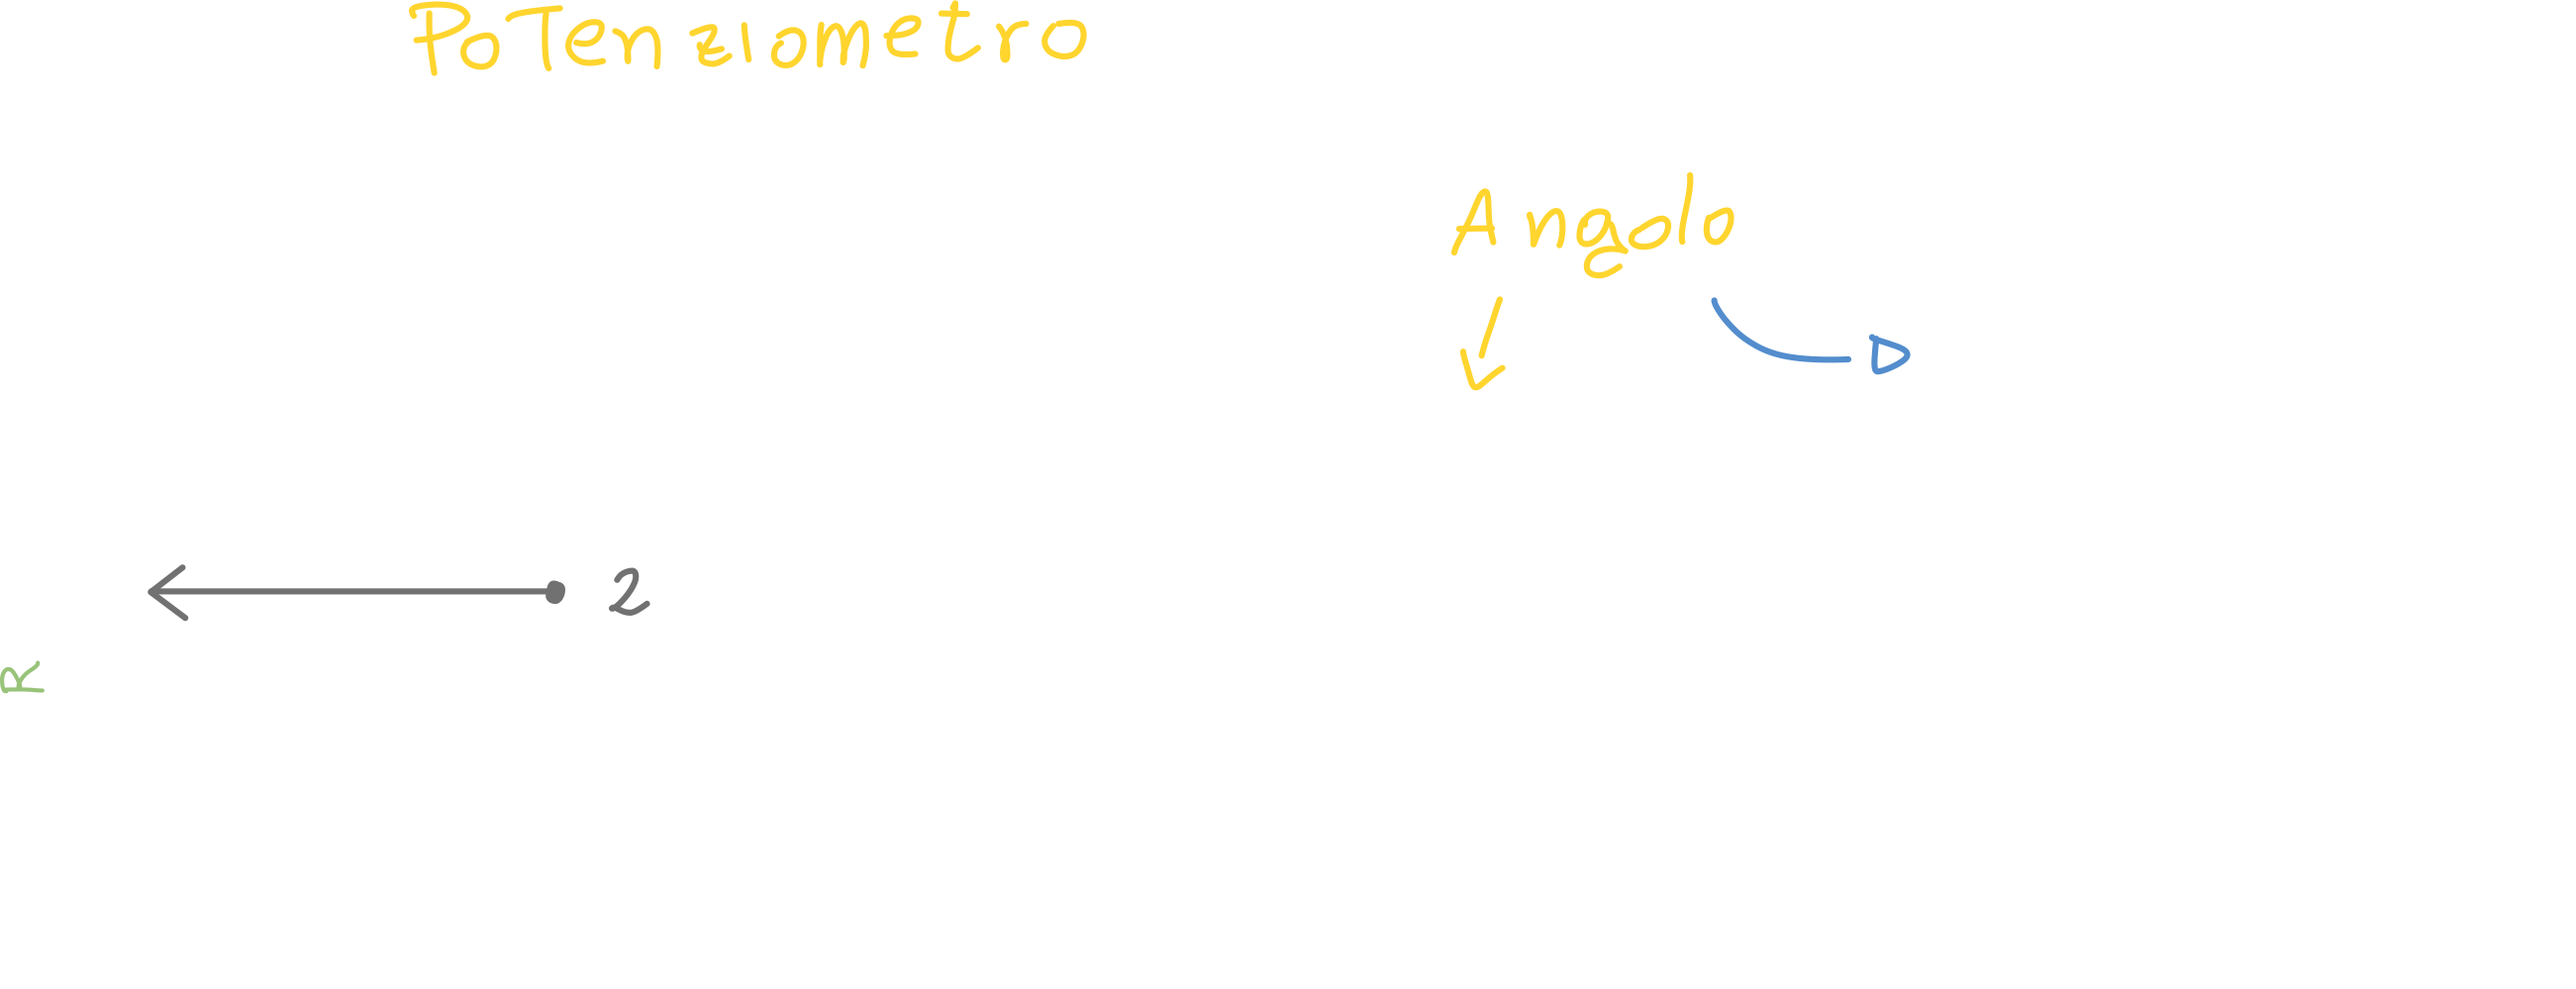 PoTenziometro
Angolo
2
R